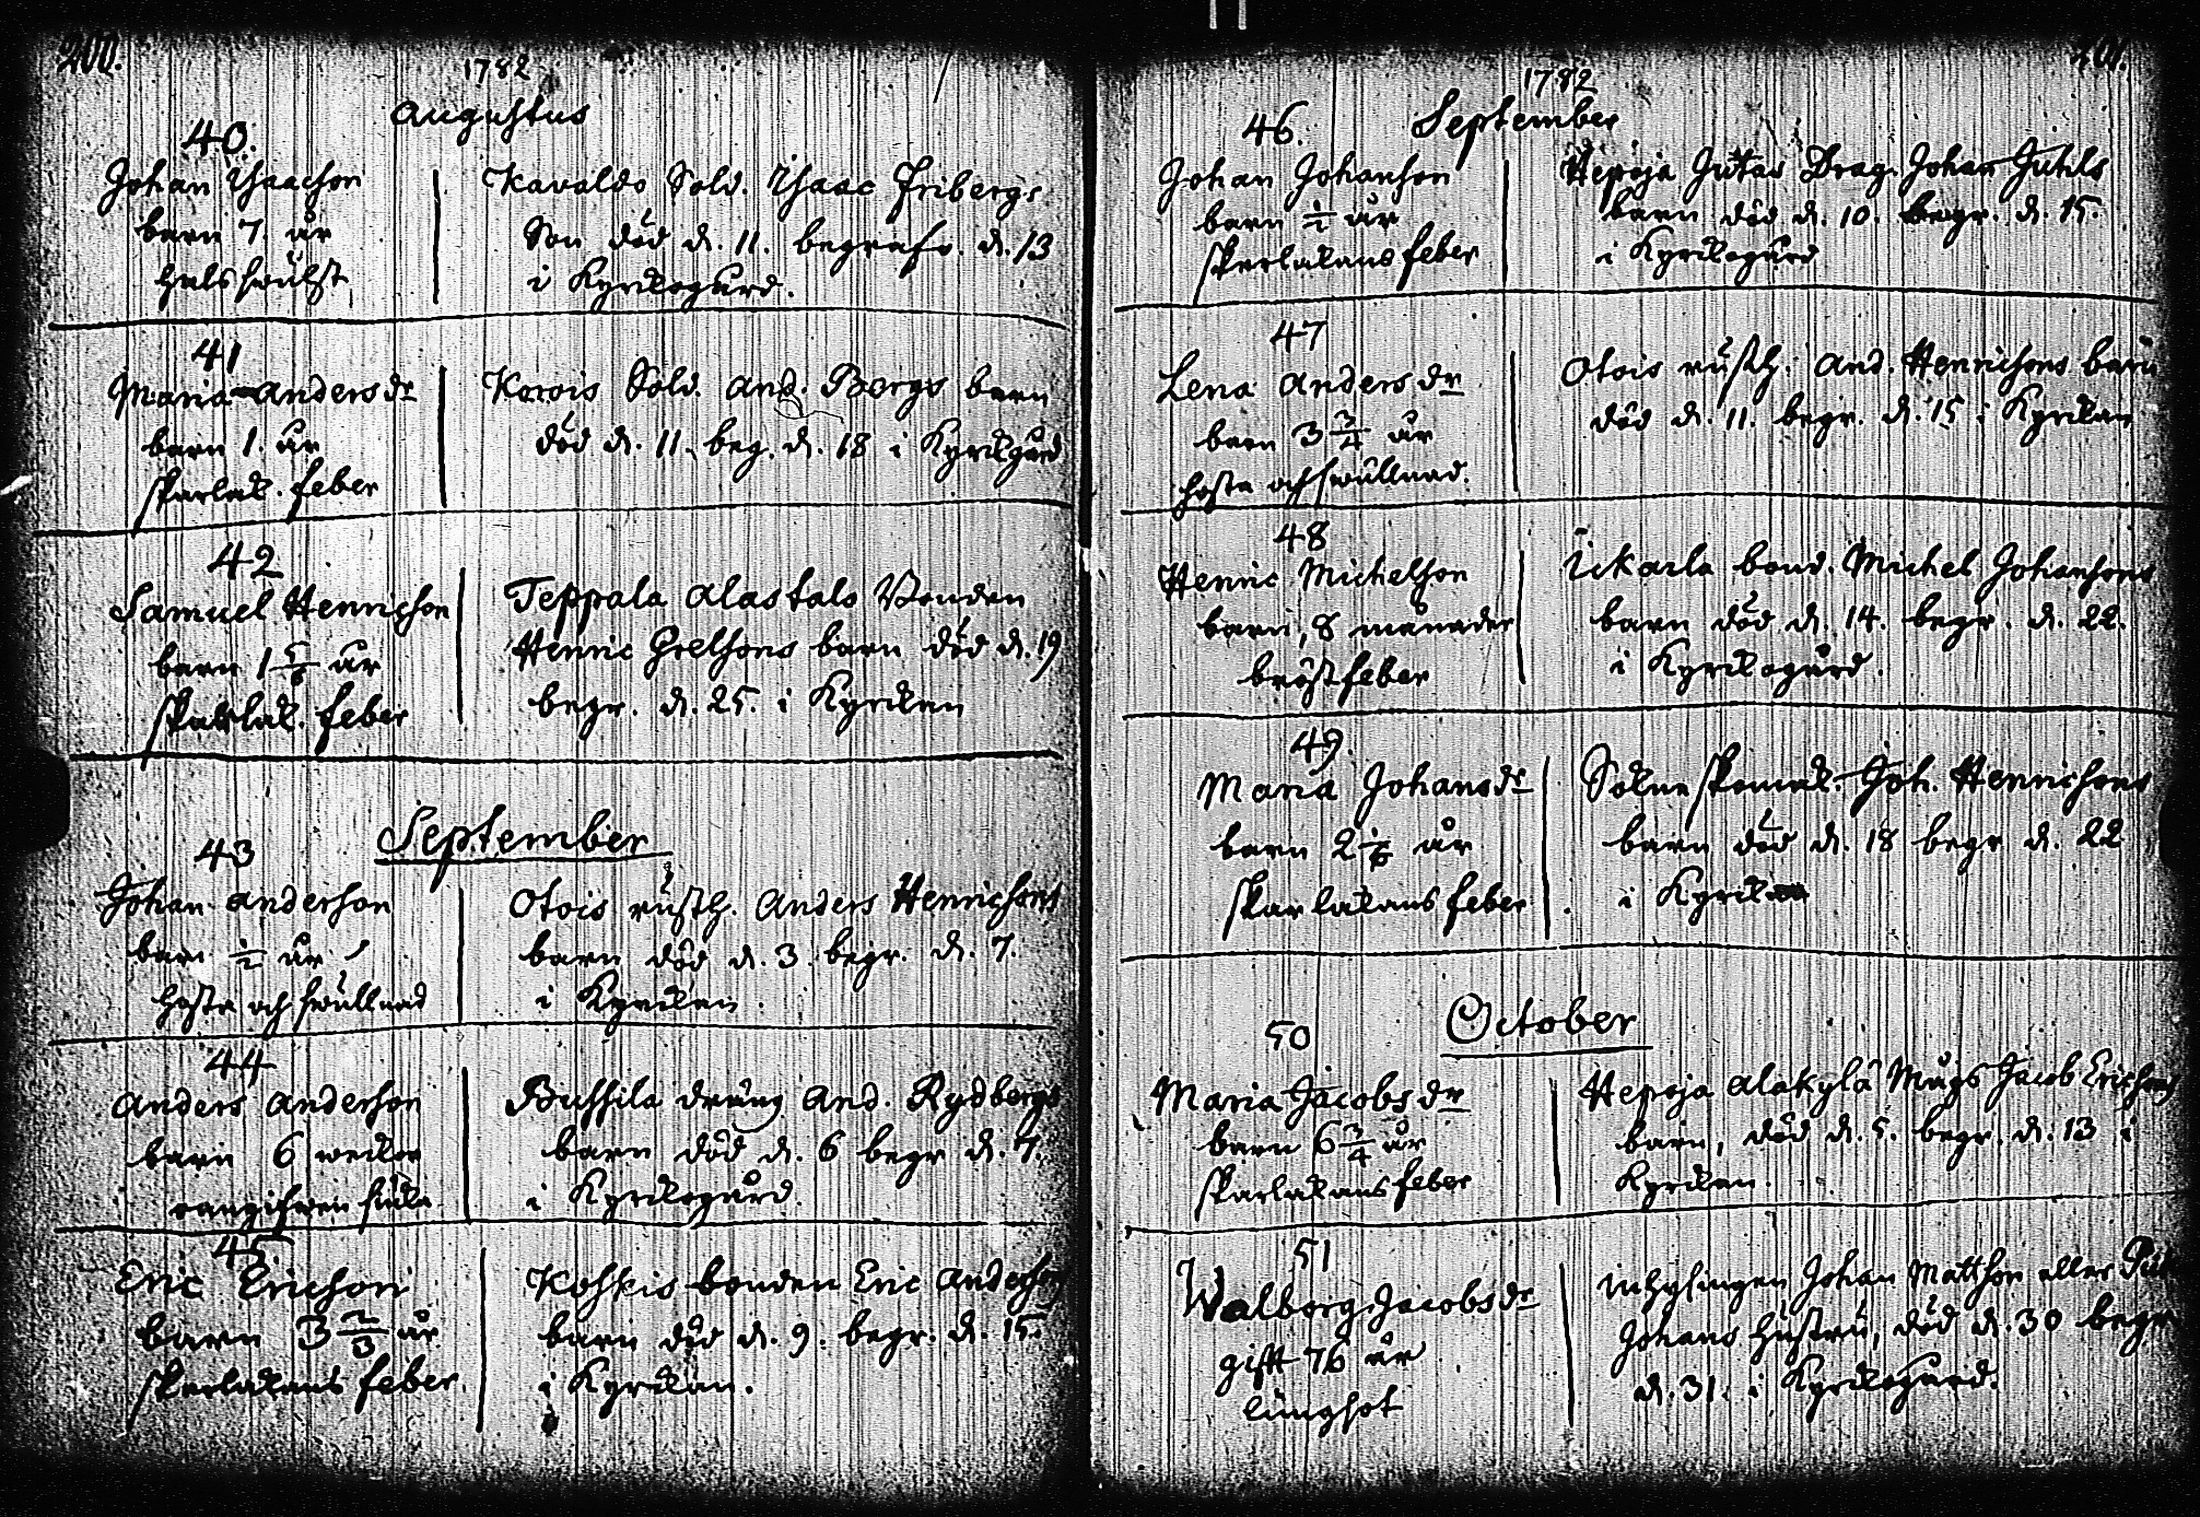 200.
1782
Augustus
40.
Johan Isaacson
barn 7. år
halsswulst
Kavaldo Sold. Isaac Fribergs
Son död d. 11. begrafv. d. 13
i Kyrkogård.
41
Maria Andersdr
barn 1. år
skarlak. feber
Korois Sold. And. Bergs barn
död d. 11. beg. d. 18 i Kyrkgård
42
Samuel Henricson
barn 1 5/6 år
skarlak. feber
Teppala Alastalo Bonden
Henric Grelsons barn död d. 19
begr. d. 25. i Kyrkan
September
43
Johan Anderson
barn 1/2 år
hosta och swullnad
Otois rusth. Anders Henricsons
barn död d. 3. begr. d. 7.
i Kyrkan.
44
Anders Anderson
barn 6 weckor
Bussila dräng And. Rydbergs
barn död d. 6 begr d. 7.
i Kyrkogård.
45.
Eric Ericson
barn 3 2/3 år
skarlakans feber.
Koskis bonden Eric Anderson
barn död d. 9. begr. d. 15.
i Kyrkan.
201.
1782
September
46.
Johan Johanson
barn 1/2 år
skarlakans feber
Hepoja Drag. Johan
barn död d. 10. begr. d. 15.
i Kyrkogård
47
Lena Andersdr
barn 3 3/4 år
hosta och swullnad.
Otois rusth. And. Henricsons barn
död d. 11. begr. d. 15 i Kyrkan
48
Henric Michelson
barn, 8 månader
bröstfeber
Ickarla bond. Michel Johansons
barn död d. 14. begr. d. 22.
i Kyrkogård.
49.
Maria Johansdr
barn 2 1/6 år
skarlakans feber
Sokne skomak. Joh. Henricsons
barn död d. 18 begr d. 22
i Kyrkan
October
50
Maria Jacobsdr
barn 6 3/4 år
skarlakans feber
Hepoja Alakylä Jacob Ericsons
barn, död d. 5. begr. d. 13 i
Kyrkan.
51
Walborg Jacobsdr
gift 76 år
lungsot
inhysingen Johan Mattson eller
Johans hustru, död d. 30 begr
d. 31. i Kyrkogård.